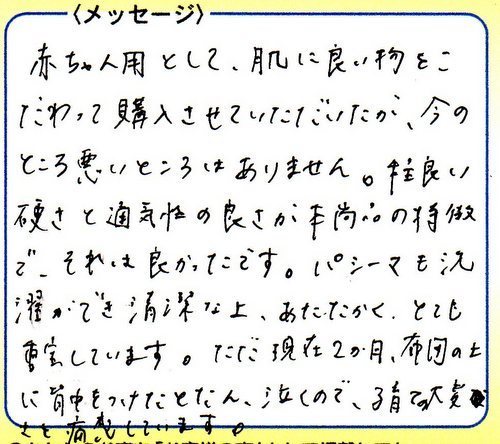 〈メッセージ〉
赤ちゃん用として、肌に良い物をこ
だわって購入させていただいたが、今の
ところ悪いところはありません。程良い
硬さと通気性の良さが本商品の特徴
で、それは良かったです。パシーマも洗
濯ができ清潔な上、あたたかく、とても
重宝しています。ただ現在2か月、布団の上
に背中をつけたとたん、泣くので、子育ての大変
さを痛感しています。